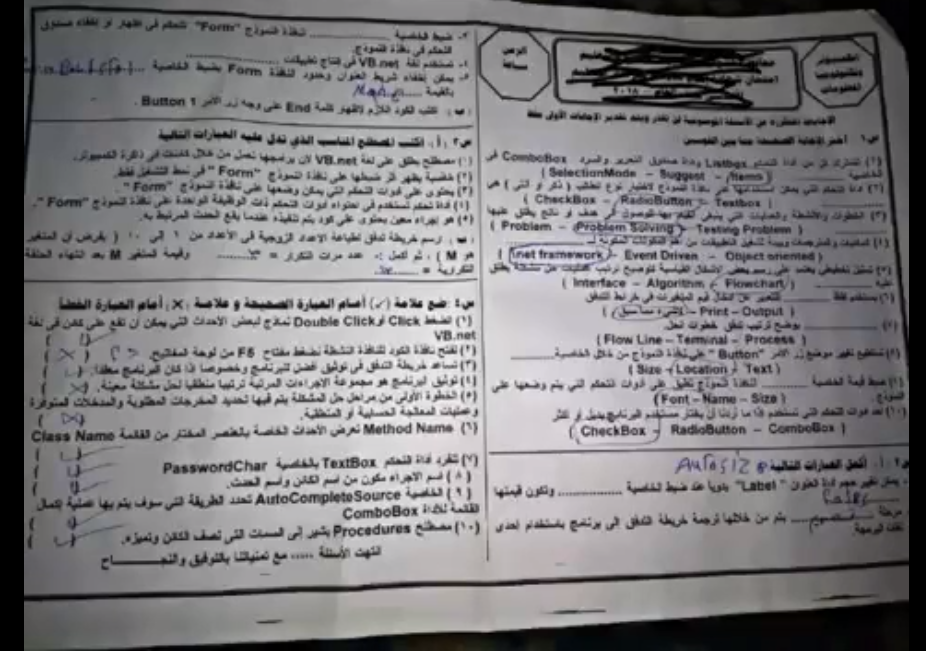 الكمبيوتر
وتكنولوجيا
المعلومات
الزمن
ساعة
س١ : أختر الإجابة الصحيحة مما بين القوسين
(١) تشترك كل من أداة التحكم Listbox وأداة صندوق التحرير والسرد ComboBox فى
الخاصية ( SelectionMode – Suggest – Items )
(٢) أداة التحكم التي يمكن استخدامها على نافذة النموذج لاختيار نوع الطالب ( ذكر أو أنثى ) هي
( CheckBox – RadioButton – Textbox )
(٣) الخطوات والأنشطة والعمليات التي ينبغي القيام بها للوصول إلى هدف أو ناتج يطلق عليها
( Problem – Problem Solving – Testing Problem )
( net framework – Event Driven – Object oriented )
(٥) تمثيل تخطيطي يعتمد على رسم بعض الأشكال القياسية لتوضيح ترتيب العمليات حل مشكلة يطلق
عليه ( Interface – Algorithm – Flowchart )
(٦) يستخدم للتعبير عن إدخال قيم المتغيرات في خرائط التدفق
( لاشىء مما سبق – Print – Output )
(٧) يوضح ترتيب تدفق خطوات الحل.
( Flow Line – Terminal – Process )
(٨) تستطيع تغيير موضع زر الأمر "Button" على نافذة النموذج من خلال الخاصية
( Size – Location – Text )
(٩) ضبط قيمة الخاصية لنافذة النموذج تطبق على أدوات التحكم التي يتم وضعها على
النموذج. ( Font – Name – Size )
(١٠) أحد أدوات التحكم التي تستخدم إذا ما أردنا أن يختار مستخدم البرنامج بديل أو أكثر
( CheckBox – RadioButton – ComboBox )
س٢ : أ : أكمل العبارات التالية
AutoSize
يمكن تغيير حجم أداة العنوان "Label" يدوياً عند ضبط الخاصية وتكون قيمتها
False
مرحلة يتم من خلالها ترجمة خريطة التدفق إلى برنامج باستخدام إحدى
لغات البرمجة.
٣- ضبط الخاصية لنافذة النموذج "Form" للتحكم فى إظهار أو إخفاء صندوق
التحكم في نافذة النموذج.
٤- تستخدم لغة VB.net في إنتاج تطبيقات
٥- يمكن إخفاء شريط العنوان وحدود النافذة Form بضبط الخاصية
بالقيمة
ب : اكتب الكود اللازم لإظهار كلمة End على وجه زر الأمر Button 1 .
س٣ : أ : أكتب المصطلح المناسب الذي تدل عليه العبارات التالية
(١) مصطلح يطلق على لغة VB.net لأن برامجها تعمل من خلال كائنات في ذاكرة الكمبيوتر.
(٢) خاصية يظهر أثر ضبطها على نافذة النموذج "Form" في نمط التشغيل فقط.
(٣) يحتوى على أدوات التحكم التي يمكن وضعها على نافذة النموذج "Form".
(٤) أداة تحكم تستخدم في احتواء أدوات التحكم ذات الوظيفة الواحدة على نافذة النموذج "Form".
(٥) هو إجراء معين يحتوى على كود يتم تنفيذه عندما يقع الحدث المرتبط به.
ب : ارسم خريطة تدفق لطباعة الأعداد الزوجية في الأعداد من ١ إلى ١٠ ( بفرض أن المتغير
هو M ) ، ثم أكمل :- عدد مرات التكرار = وقيمة المتغير M بعد انتهاء الحلقة
التكرارية =
س٤ : ضع علامة (✓) أمام العبارة الصحيحة و علامة (X) أمام العبارة الخطأ
(١) الضغط Click أو Double Click نماذج لبعض الأحداث التي يمكن أن تقع على كائن فى لغة
VB.net ( ✓ )
(٢) تفتح نافذة الكود للنافذة النشطة بضغط مفتاح F5 من لوحة المفاتيح. ( X )
(٣) تساعد خريطة التدفق في توثيق أفضل للبرنامج وخصوصاً إذا كان البرنامج معقداً. ( ✓ )
(٤) توثيق البرنامج هو مجموعة الإجراءات المرتبة ترتيباً منطقياً لحل مشكلة معينة. ( X )
(٥) الخطوة الأولى من مراحل حل المشكلة يتم فيها تحديد المخرجات المطلوبة والمدخلات المتوفرة
وعمليات المعالجة الحسابية أو المنطقية. ( X )
(٦) Method Name تعرض الأحداث الخاصة بالعنصر المختار من القائمة Class Name
( ✓ )
(٧) تنفرد أداة التحكم TextBox بالخاصية PasswordChar ( ✓ )
(٨) اسم الإجراء مكون من اسم الكائن واسم الحدث. ( ✓ )
(٩) الخاصية AutoCompleteSource تحدد الطريقة التي سوف يتم بها عملية إكمال
القائمة للأداة ComboBox ( ✓ )
(١٠) مصطلح Procedures يشير إلى السمات التي تصف الكائن وتميزه. ( ✓ )
انتهت الأسئلة ..... مع تمنياتنا بالتوفيق والنجـــــــاح